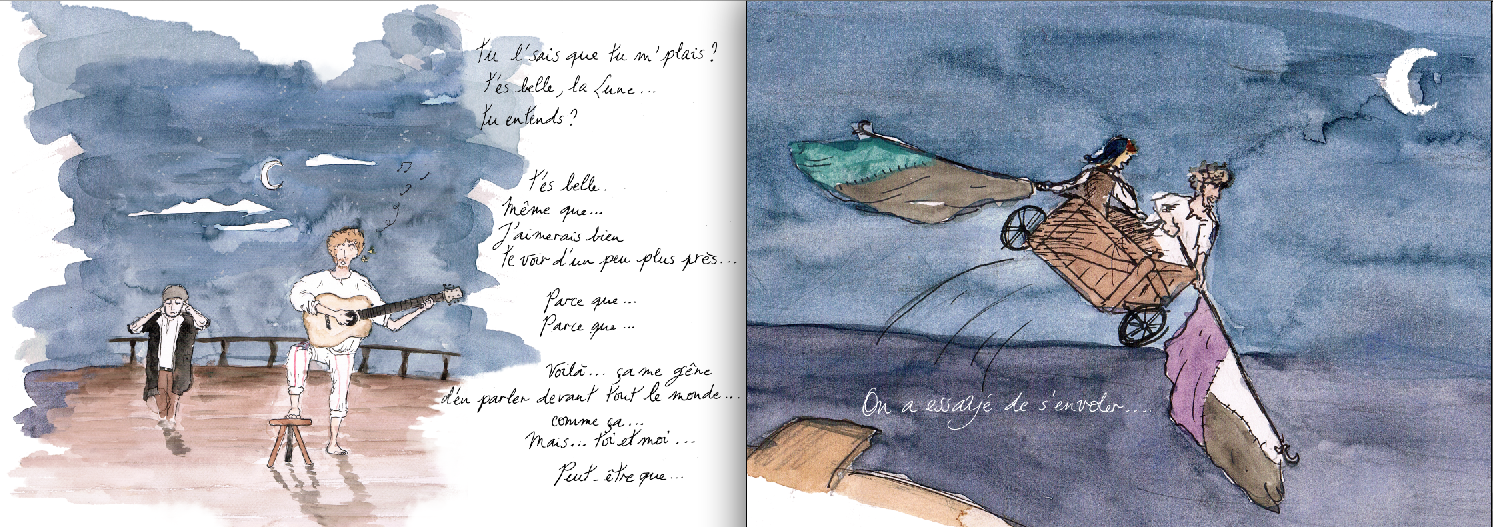 Tu l'sais que tu m'plais ?
T'es belle, la Lune...
Tu entends ?
T'es belle.
Même que...
J'aimerais bien
te voir d'un peu plus près...
Parce que...
Parce que...
Voilà... ça me gêne
d'en parler devant tout le monde...
comme ça...
Mais... toi et moi...
Peut-être que...
On a essayé de s'envoler...